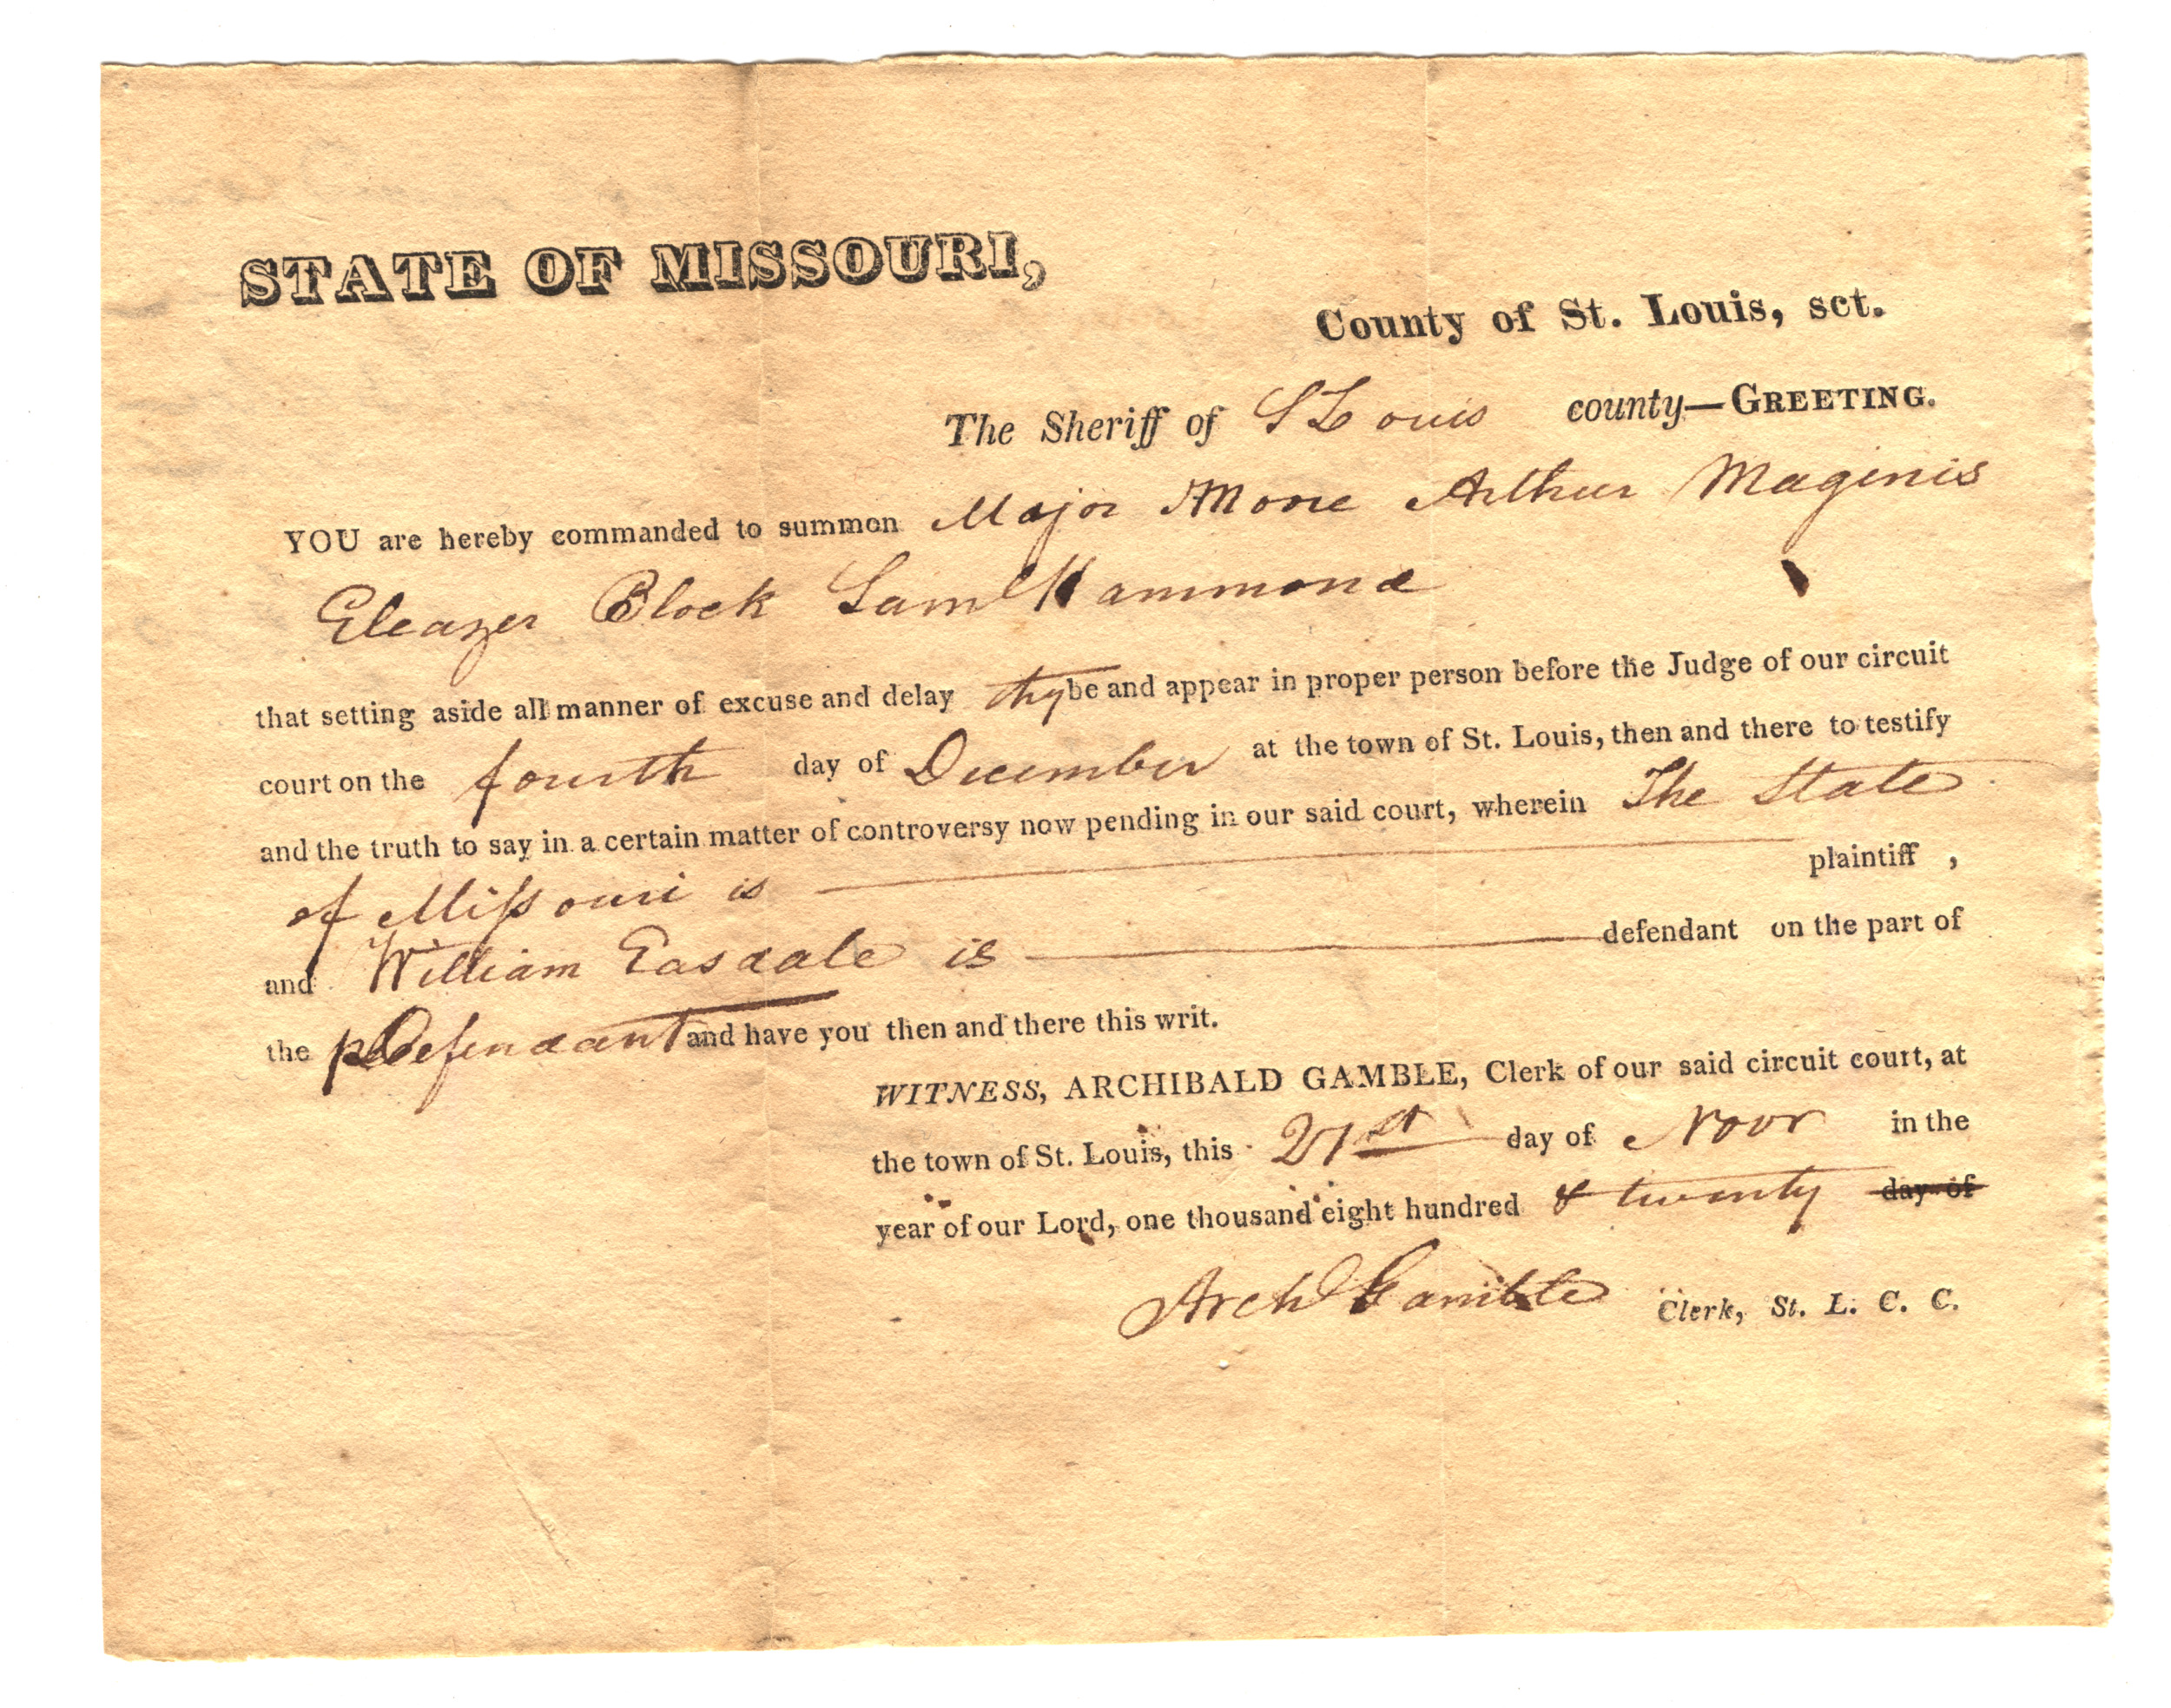 STATE OF MISSOURI,
County of St. Louis, sct.
The Sheriff of S Louis county—GREETING.
YOU are hereby commanded to summon Major Arthur Maginis
Eleazer Block Saml Hammond
that setting aside all manner of excuse and delay thy be and appear in proper person before the Judge of our circuit
court on the fourth day of December at the town of St. Louis, then and there to testify
and the truth to say in a certain matter of controversy now pending in our said court, wherein The State
of Missouri is plaintiff ,
and William Easdale is defendant on the part of
the Defendant and have you then and there this writ.
WITNESS, ARCHIBALD GAMBLE, Clerk of our said circuit court, at
the town of St. Louis, this 21st day of Novr in the
year of our Lord, one thousand eight hundred & twenty day of
Archd Gamble Clerk, St. L. C. C.